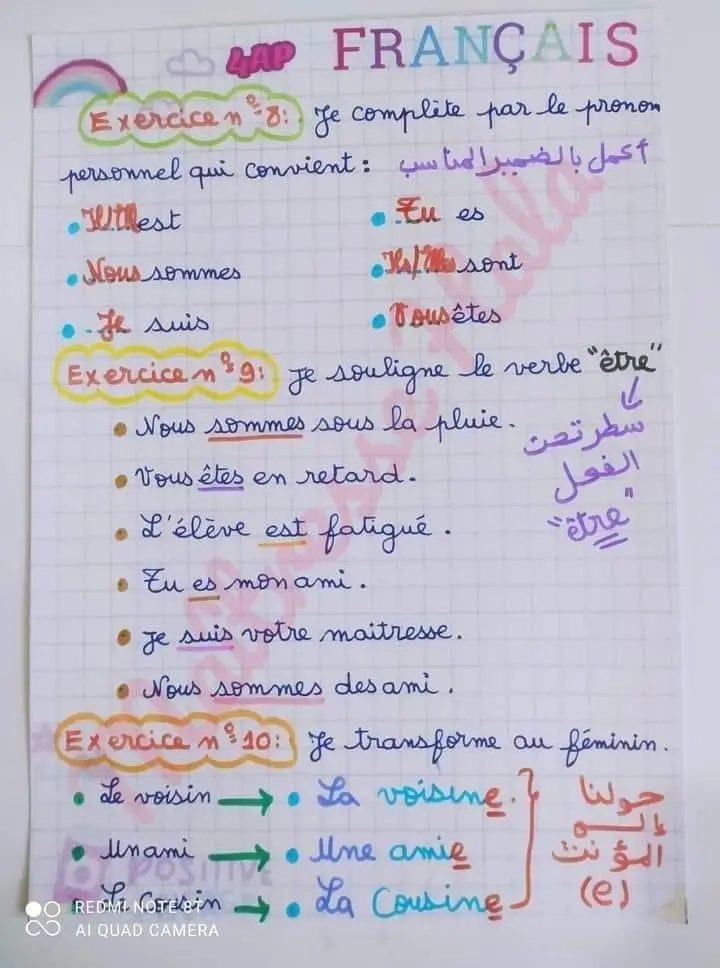 4AP FRANÇAIS
Exercice n° 8: Je complète par le pronom
personnel qui convient : أكمل بالضمير المناسب
Il/Elle est
Tu es
Nous sommes
Ils/Elles sont
Je suis
Vous êtes
Exercice n° 9: Je souligne le verbe "être"
Nous sommes sous la pluie.
سطر تحت
Vous êtes en retard.
الفعل
L'élève est fatigué.
"être"
Tu es mon ami.
Je suis votre maitresse.
Nous sommes des ami.
Exercice n° 10: Je transforme au féminin.
Le voisin → La voisine.
حولنا
إلى
Un ami → Une amie
المؤنث
Le cousin → La Cousine
(e)
Maitresse Hala
POSITIVE
REDMI NOTE 8T
AI QUAD CAMERA